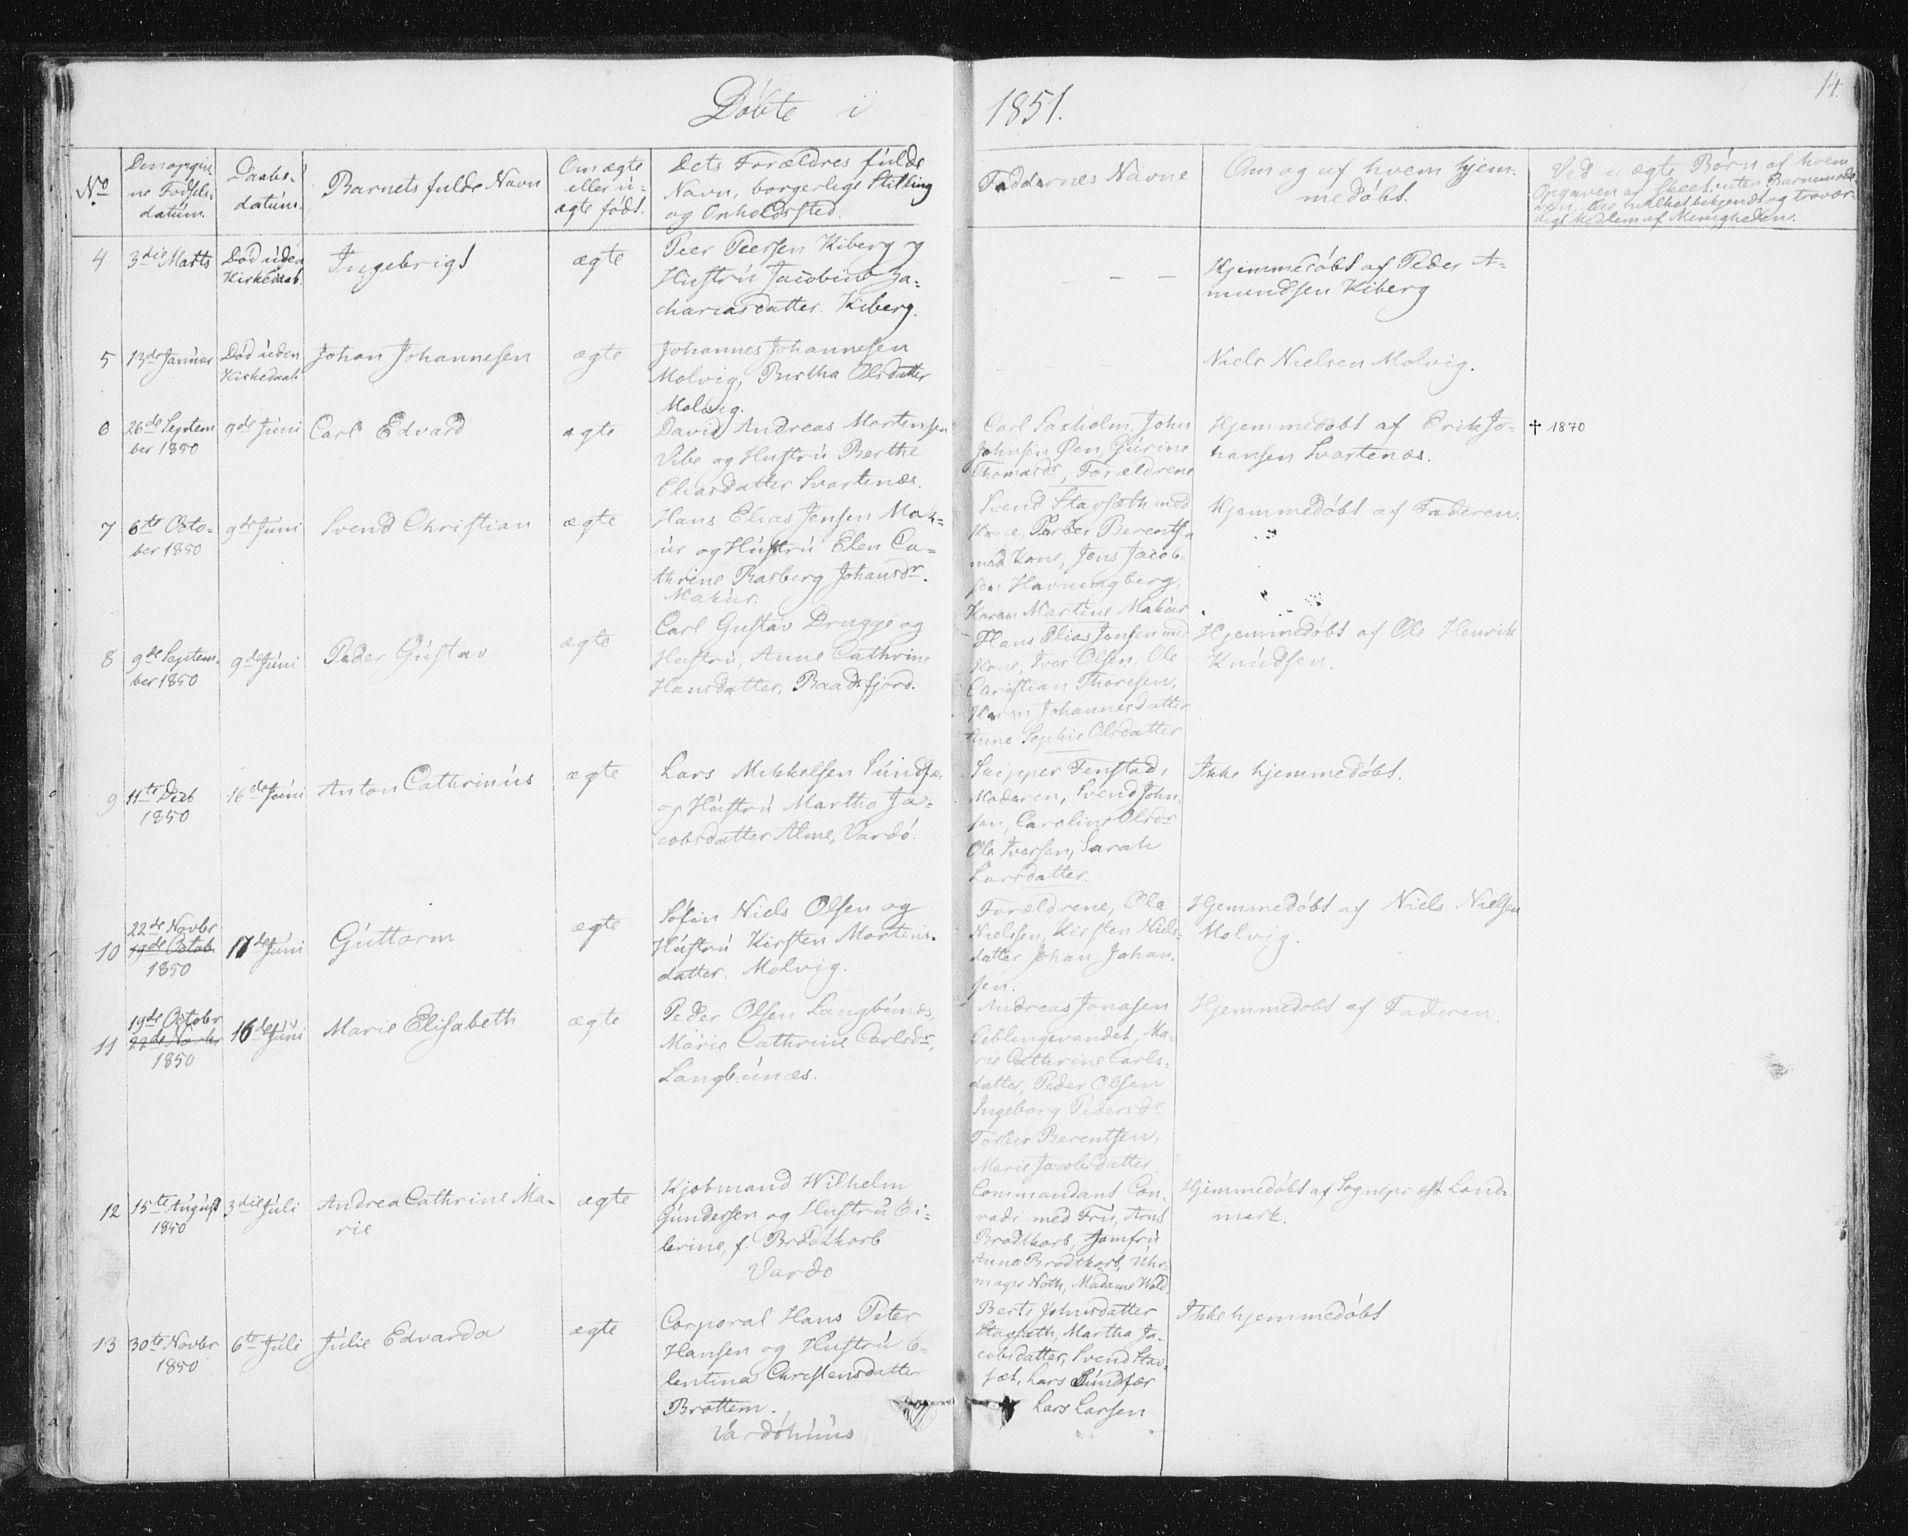 Döbte i 1851.
14.
No.
Den opgivne Födsels-datum.
Daabs-datum.
Barnets fulde Navn
Om ægte eller u-ægte født.
Dets Forældres fulde Navn, borgerlige Stilling og Opholdssted.
Faddernes Navne
Om og af hvem hjem-medöbt.
Ved uægte Börn af hvem Opgaven er skeet, uten Barnemode-ren, eller velbekjendt og trovær-digt Medlem af Menigheden.
4
3die Marts
Död uden
Kirkedaab.
Ingebrigt
ægte
Peer Peersen Kiberg og
Hustru Jacobine Za-
chariasdatter. Kiberg.
Hjemmedöbt af Peder A-
mundsen Kiberg
5
13de Januar
Död uden
Kirkedaab
Johan Johannesen
ægte
Johannes Johannesen
Molvig, Bertha Olsdatter
Molvig.
Niels Nielsen Molvig.
6
26de Septem
ber 1850
9de Juni
Carl Edvard
ægte
David Andreas Mortensen
Vibe og Hustru Berthe
Eliasdatter Svartenæs.
Carl Saxholm, John
Johnsen Øen, Gurine
Thomasdr, Forældrene
Hjemmedöbt af Erik Jo-
hansen Svartenæs.
✝ 1870
7
6te Octo-
ber 1850
9de Juni
Svend Christian
ægte
Hans Elias Jensen Mak-
ur og Hustru Elen Ca-
thrine Basberg Johansdr.
Makur.
Svend Stavsæth med
Kone, Torber Berentsen
med Kone, Jens Jacob-
sen Havningberg,
Karen Martine Makur
Hjemmedöbt af Faderen.
8
9de Septem-
ber 1850
9de Juni
Peder Gustav
ægte
Carl Gustav Drugge og
Hustru, Anne Cathrine
Hansdatter, Baadsfjord.
Hans Elias Jensen med
Kone, Iver Olsen, Ole
Christian Thoresen,
Karen Johannesdatter
Anne Sophie Olsdatter
Hjemmedöbt af Ole Henrik
Knudsen.
9
11te Decb
1850
16de Juni
Anton Cathrinus
ægte
Lars Mikkelsen Sundfær
og Hustru Martha Ja-
cobsdatter Alme, Vardö.
Skipper Fenstad,
Moderen, Svend John-
sen, Caroline Olsdr
Ole Iversen, Sarah
Larsdatter.
Ikke hjemmedöbt.
10
22de Novbr
19de Octob.
1850
17de Juni
Guttorm
ægte
Söfin Niels Olsen og
Hustru Kirsten Mortens-
datter. Molvig.
Forældrene, Ole
Nielsen, Kirsten Niels-
datter Johan Johan-
sen.
Hjemmedöbt af Niels Nielsen
Molvig.
11
19de October
22de Novbr
1850
16de Juni
Marie Elisabeth
ægte
Peder Olsen Langbunes,
Marie Cathrine Carlsdr,
Langbunæs.
Andreas Jonasen
Veblingevandet, Ma-
rie Cathrine Carls-
datter, Peder Olsen
Ingeborg Pedersdr
Torber Berentsen,
Marie Jacobsdatter
Hjemmedöbt af Faderen.
12
15te August
1850
3die Juli
Andrea Cathrine Ma-
rie
ægte
Kjöbmand Wilhelm
Gundersen og Hustru Ei-
lerine, f. Brodtkorb
Vardö
Commandant Con-
radi med Frue, Arnt
Brodtkorb, Jomfru
Anna Brodtkorb, Uhr-
mager Noth, Madame Wold
Hjemmedöbt af Sognepræst Land-
mark.
13
30te Novbr
1850
6te Juli
Julie Edvarda
ægte
Corporal Hans Peter
Hansen og Hustru O-
lentina Christensdatter
Brottem.
Vardöhuus
Berte Johnsdatter
Stavsæth, Martha Ja-
cobsdatter, Svend Stav-
sæt, Lars Sundfær
Lars Larsen
Ikke hjemmedöbt